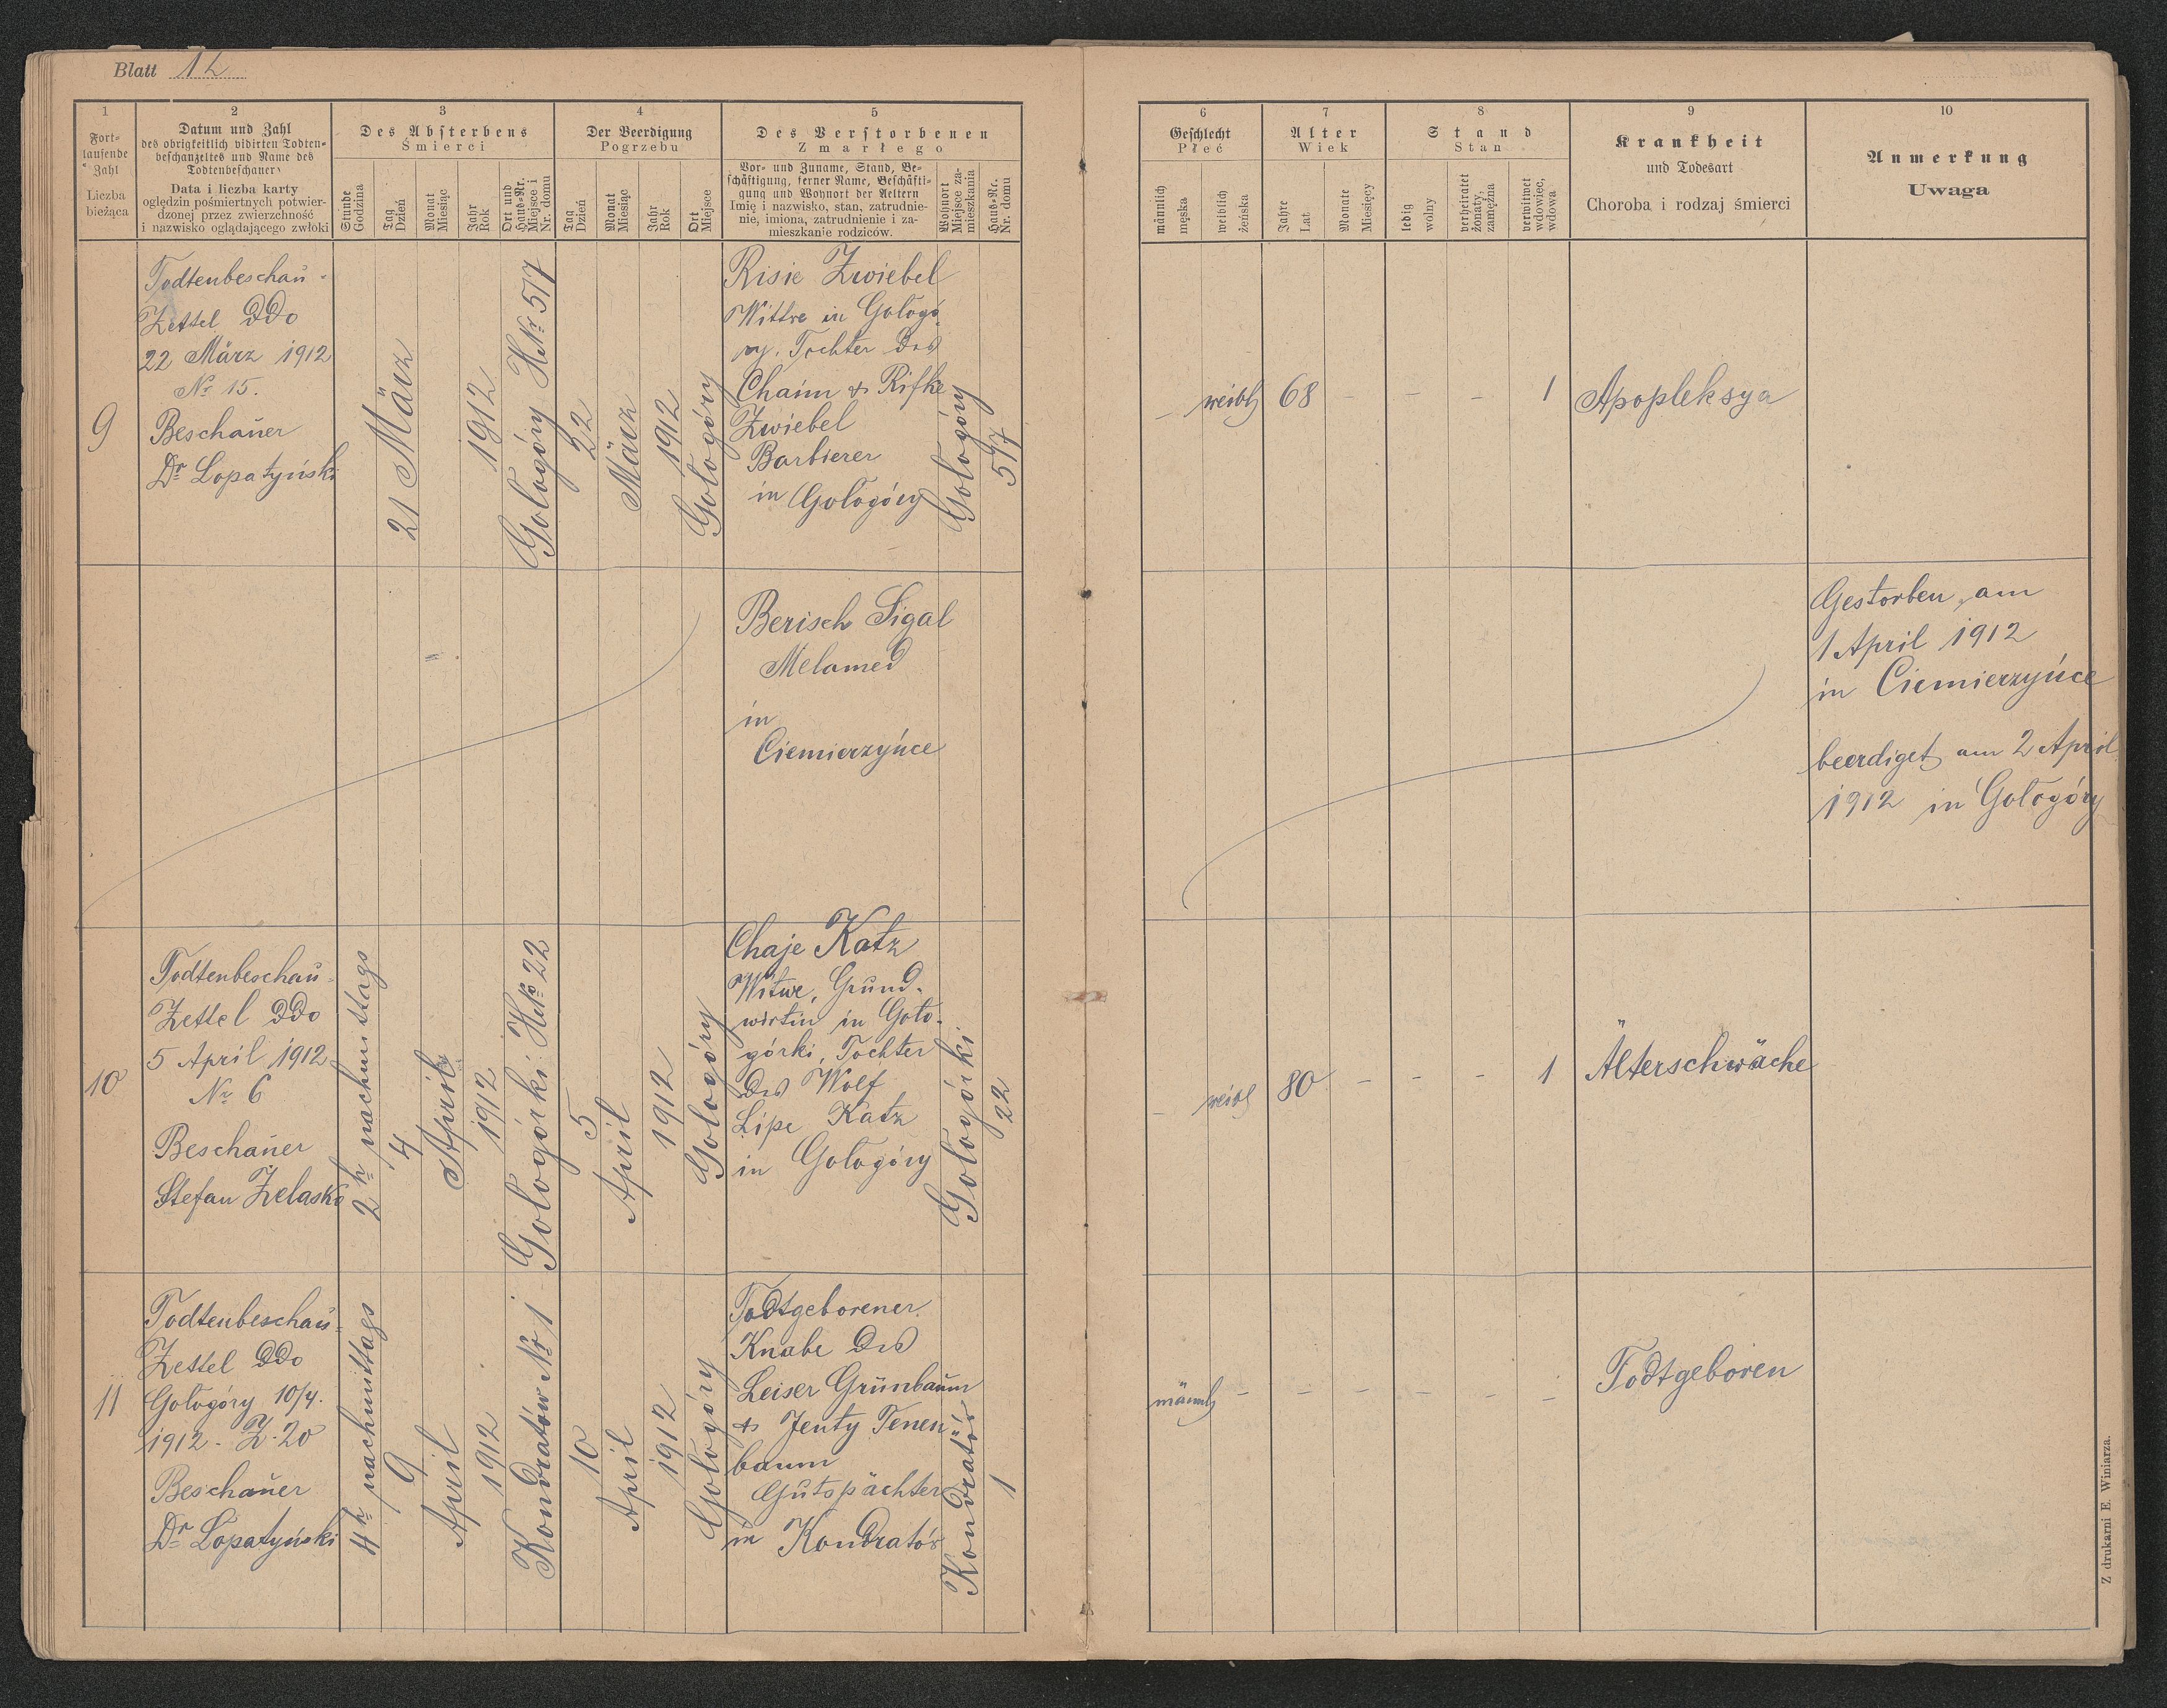 Blatt 12
1
Fort-
laufende
Zahl
Liczba
bieżąca
2
Datum und Zahl
des obrigkeitlich vidirten Todten-
beschauzeltes und Name des
Todtenbeschauers
Data i liczba karty
oględzin pośmiertnych potwier-
dzonej przez zwierzchność
i nazwisko oglądającego zwłoki
3
Des Absterbens
Śmierci
Stunde
Godzina
Tag
Dzień
Monat
Miesiąc
Jahr
Rok
Ort und
Haus-Nr.
Miejsce i
Nr. domu
4
Der Beerdigung
Pogrzebu
Tag
Dzień
Monat
Miesiąc
Jahr
Rok
Ort
Miejsce
5
Des Verstorbenen
Zmarłego
Vor- und Zuname, Stand, Be-
schäftigung, ferner Name, Beschäfti-
gung und Wohnort der Aeltern
Imię i nazwisko, stan, zatrudnie-
nie, imiona, zatrudnienie i za-
mieszkanie rodziców.
Wohnort
Miejsce za-
mieszkania
Haus-Nr.
Nr. domu
6
Geschlecht
Płeć
männlich
męska
weiblich
żeńska
7
Alter
Wiek
Jahre
Lat
Monate
Miesięcy
8
Stand
Stan
ledig
wolny
verheiratet
żonaty,
zamężna
verwitwet
wdowiec,
wdowa
9
Krankheit
und Todesart
Choroba i rodzaj śmierci
10
Anmerkung
Uwaga
9
Todtenbeschau-
Zettel ddo
22 März 1912
Nr 15.
Beschauer
Dr Lopatyński
21
März
1912
Gołogóry HNr 517
22
März
1912
Gołogóry
Risie Zwiebel
Wittwe in Gołogó
ry. Tochter des
Chaim & Rifke
Zwiebel
Barbierer
in Gołogóry
Gołogóry
597
– weibl 68 – – – 1 Apopleksya
Berisch Sigal
Melamed
in
Ciemierzyńce
Gestorben am
1 April 1912
in Ciemierzyńce
beerdiget am 2 April
1912 in Gołogóry
10
Todtenbeschau-
Zettel ddo
5 April 1912
Nr 6
Beschauer
Stefan Zelasko
2h nachmittags
4
April
1912
Gołogórki HNo 22
5
April
1912
Gołogóry
Chaje Katz
Witwe, Grund-
wirtin in Goło-
górki, Tochter
des Wolf
Lipe Katz
in Gołogóry
Gołogórki
22
– weibl 80 – – – 1 Älterschwäche
11
Todtenbeschau-
Zettel ddo
Gołogóry 10/4.
1912. Z. 20
Beschauer
Dr Lopatyński
4h nachmittags
9
April
1912
Kondratów Nr 1
10
April
1912
Gołogóry
Todtgeborener
Knabe des
Leiser Grünbaum
& Jenty Tenen-
baum
Gutspächter
in Kondratów
Kondratów
1
männl – – – – – – Todtgeboren
Z drukarni E. Winiarza.